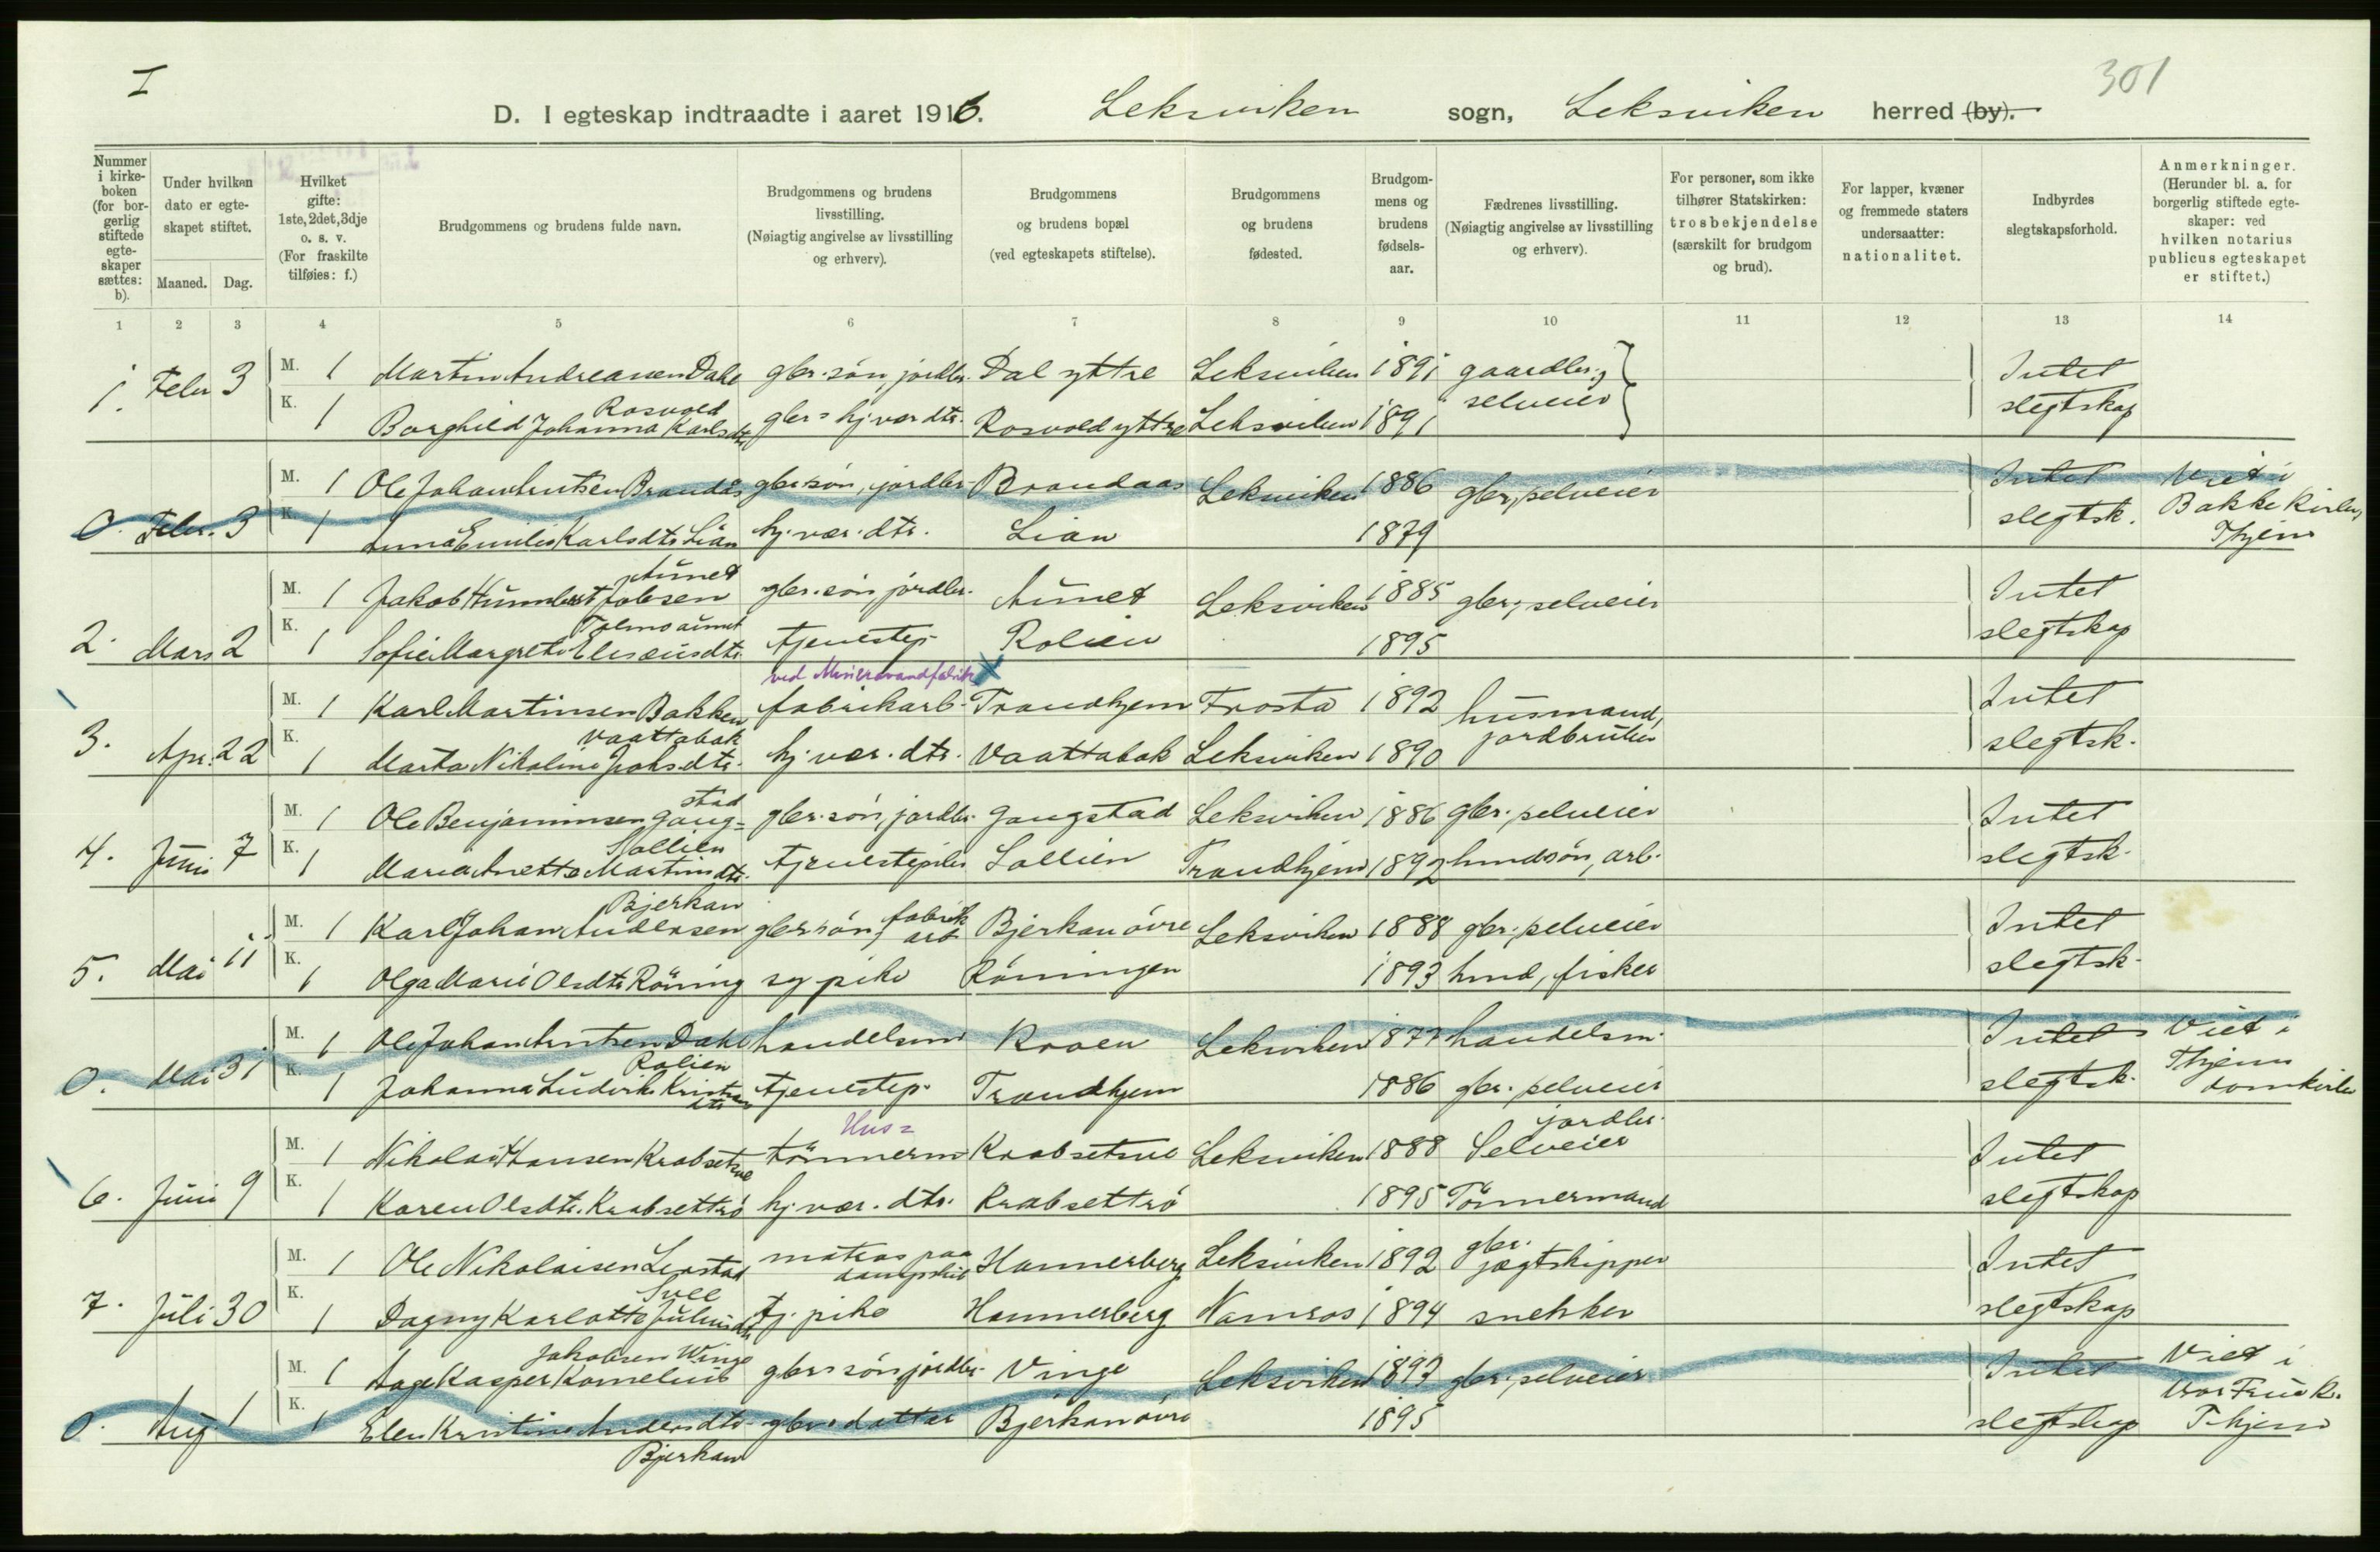 I
301
D. I egteskap indtraadte i aaret 1916. Leksviken sogn, Leksviken herred (by).
Nummer i kirkeboken (for borgerlig stiftede egteskaper sættes: b).
Under hvilken dato er egteskapet stiftet.
Maaned. Dag.
Hvilket gifte: 1ste, 2det, 3dje o. s. v. (For fraskilte tilføies: f.)
Brudgommens og brudens fulde navn.
Brudgommens og brudens livsstilling. (Nøiagtig angivelse av livsstilling og erhverv).
Brudgommens og brudens bopæl (ved egteskapets stiftelse).
Brudgommens og brudens fødested.
Brudgommens og brudens fødselsaar.
Fædrenes livsstilling. (Nøiagtig angivelse av livsstilling og erhverv).
For personer, som ikke tilhører Statskirken: trosbekjendelse (særskilt for brudgom og brud).
For lapper, kvæner og fremmede staters undersaatter: nationalitet.
Indbyrdes slegtskapsforhold.
Anmerkninger. (Herunder bl. a. for borgerlig stiftede egteskaper: ved hvilken notarius publicus egteskapet er stiftet.)
1 2 3 4 5 6 7 8 9 10 11 12 13 14
1. Febr 3 M. 1 Martin Andreassen Dahl gbr. søn, jordbr. Dal yttre Leksviken 1891 gaardbr. selveier Intet
K. 1 Borghild Johanna Karlsdtr Rosvold gbr = hj. vær dtr. Rosvold yttre Leksviken 1891 slegtskap
0. Febr. 3 M. 1 Ole Johan Arntsen Brandås gbr søn, jordbr Brandaas Leksviken 1886 gbr, selveier Intet Viet i
K. 1 Anna Emilie Karlsdtr Lian hj. vær. dtr. Lian 1879 slegtsk. Bakke Kirke, Thjem
2. Mars 2 M. 1 Jakob Jobsen Aunet gbr. søn, jordbr. Aunet Leksviken 1885 gbr, selveier Intet
K. 1 Sofie Margrete Elisæusdtr. tjenestep. Rolien 1895 slegtskap
ved Mineralvandfabrik
3. Apr. 22 M. 1 Karl Martinsen Bakken fabrikarb. Trondhjem Frosta 1892 husmand, jordbruker Intet
K. 1 Marta Nikoline Johsdtr. Vaattabak hj. vær. dtr. Vaattabak Leksviken 1890 slegtsk.
4. Juni 7 M. 1 Ole Benjaminsen Gangstad gbr. søn, jordbr. Gangstad Leksviken 1886 gbr. selveier Intet
K. 1 Maria Anetta Martinsdtr. Sollien tjenestepike Sollien Trondhjem 1892 hmdsøn, arb. slegtsk.
5. Mai 11 M. 1 Karl Johan Andersen Bjerkan gbr søn, fabrik arb Bjerkan övre Leksviken 1888 gbr., selveier Intet
K. 1 Olga Marie Olsdtr Röning sypike Röningen 1893 hmd, fisker slegtsk.
0. Mai 31 M. 1 Ole Johan Arntsen Dahl handelsm Kroen Leksviken 1877 handelsm. Intet Viet i
K. 1 Johanna Ludvikke Kristiansdtr Rolien tjenestep. Trondhjem 1886 gbr. selveier slegtsk. Thjems domkirke
6. Juni 9 M. 1 Nikolai Hansen Krabsetrue Hus= tömmerm Krabsetrue Leksviken 1888 jordbr. Selveier Intet
K. 1 Karen Olsdtr. Krabsettrö hj. vær. dtr. Krabsettrö 1895 Tömmermand slegtskap
7. Juli 30 M. 1 Ole Nikolaisen Lerstad matros paa dampskib Hammerberg Leksviken 1892 gbr. jægtskipper Intet
K. 1 Dagny Karlotte Juliusdtr tj. pike Hammerberg Namsos 1894 snekker slegtskap
0. Aug. 1 M. 1 Aage Kasper Kornelius Jakobsen Winge gbr søn, jordbr. Vinge Leksviken 1893 gbr., selveier Intet Viet i
K. 1 Elen Kristine Andersdtr. Bjerkan gbr. datter Bjerkan övre 1895 slegtskap Vor Frue K. Thjem